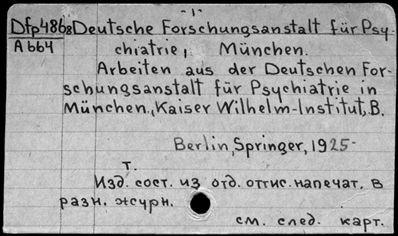 -1-
Dfp486₈ Deutsche Forschungsanstalt für Psy-
A664 chiatrie, München.
Arbeiten aus der Deutschen For-
schungsanstalt für Psychiatrie in
München, Kaiser Wilhelm-Institut, B.
Berlin, Springer, 1925-
т.
Изд. сост. из отд. оттис. напечат. в
разн. журн.
см. след. карт.